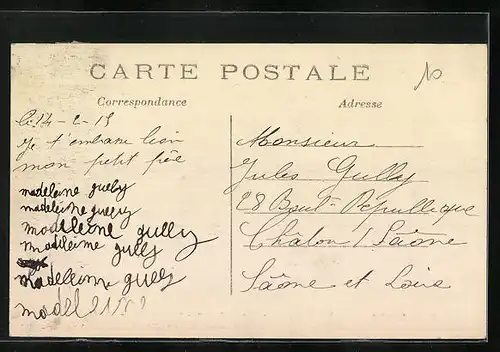 CARTE POSTALE
Correspondance
Adresse
le 14-2-15
Je t'embrasse bien
mon petit père
madeleine gully
madeleine gully
madeleine gully
madeleine gully
madeleine gully
madel
Monsieur
Jules Gully
28 Bout. République
Châlon / Saône
Saône et Loire